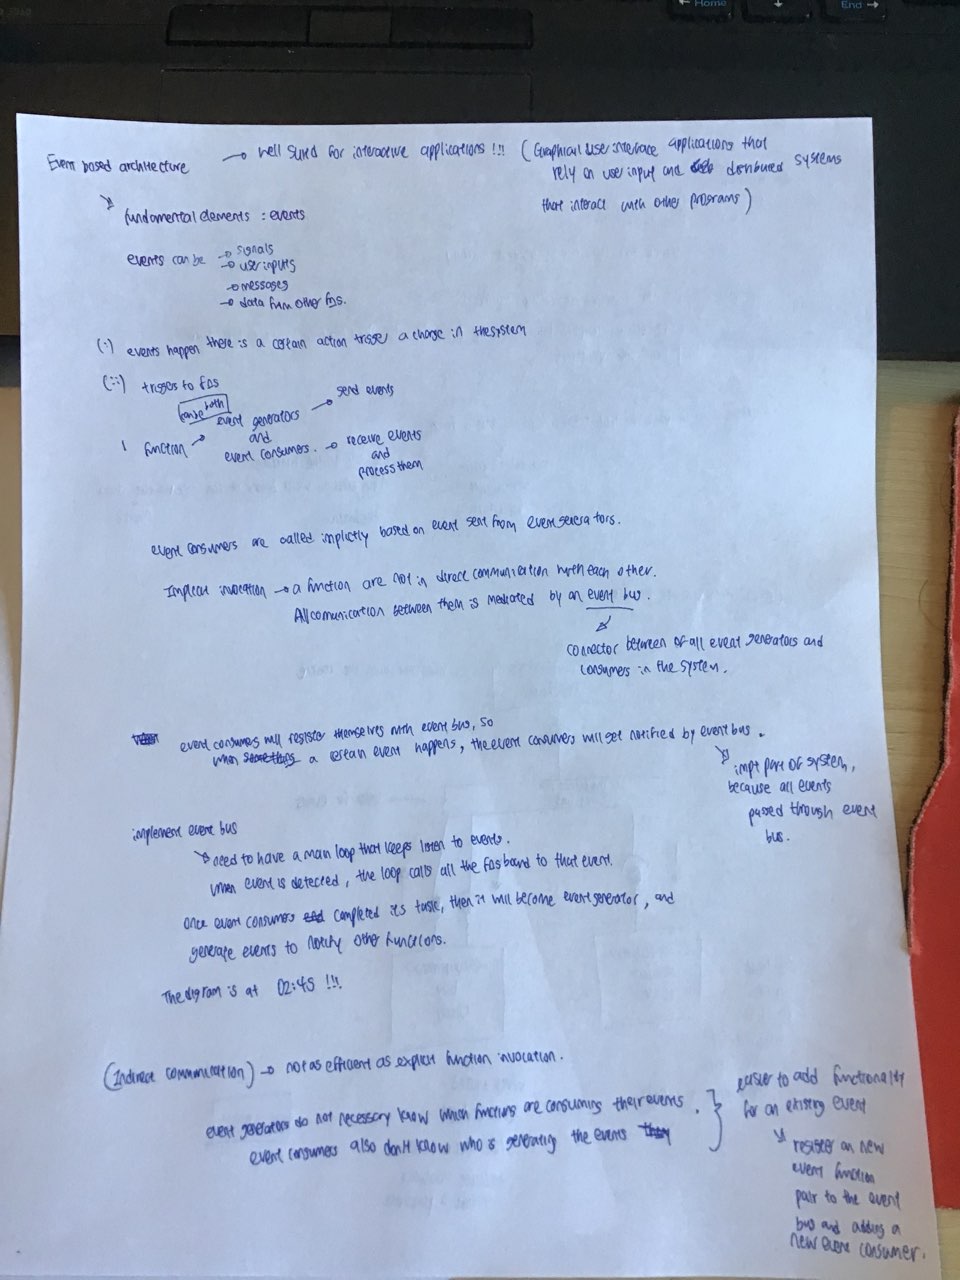 Home
End →
Event based architecture → well suited for interactive applications !!! (Graphical use interface applications that
rely on user input and distributed systems
that interact with other programs)
fundamental elements : events
events can be → signals
→ user inputs
→ messages
→ data from other fns.
(∵) events happen there is a certain action trigger a change in the system
(::) triggers to fns
can be both
1 function → event generators → send events
and
event consumers. → receive events
and
process them
event consumers are called implictly based on event sent from event generators.
Implicit invocation → a function are not in direct communication with each other.
All comunication between them is mediated by an event bus.
connector between of all event generators and
consumers in the system.
event consumers will register themselves with event bus, so
when something a certain event happens, the event consumers will get notified by event bus.
impt part of system,
because all events
passed through event
bus.
implement event bus
need to have a main loop that keeps listen to events.
when event is detected, the loop calls all the fns bound to that event.
once event consumers completed its task, then it will become event generator, and
generate events to notify other functions.
The digram is at 02:45 !!!
(Indirect communication) → not as efficient as explicit function invocation.
event generators do not necessary know which functions are consuming their events.
event consumers also don't know who is generating the events they
easier to add functionality
for an existing event
register an new
event function
pair to the event
bus and adding a
new event consumer.